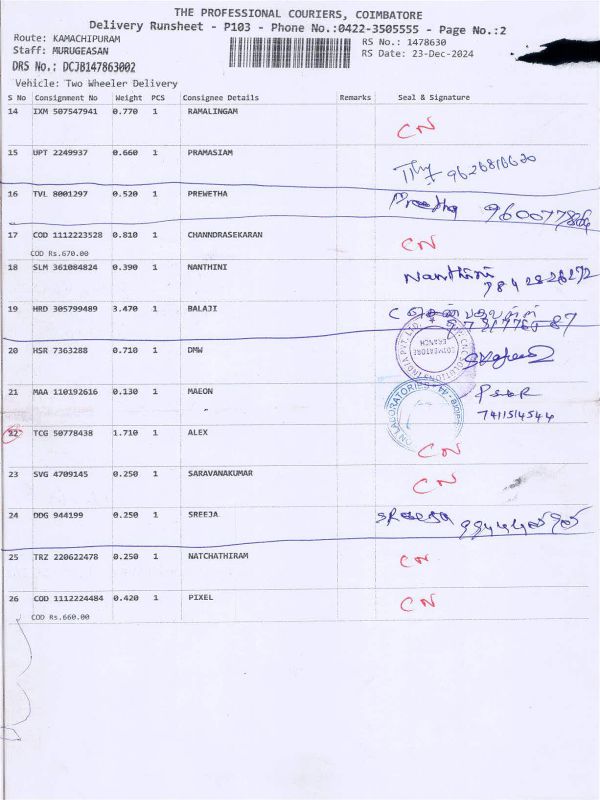 THE PROFESSIONAL COURIERS, COIMBATORE
Delivery Runsheet - P103 - Phone No.:0422-3505555 - Page No.:2
Route: KAMACHIPURAM
RS No.: 1478630
Staff: MURUGEASAN
RS Date: 23-Dec-2024
DRS No.: DCJB147863002
Vehicle: Two Wheeler Delivery
S No Consignment No Weight PCS Consignee Details Remarks Seal & Signature
14 IXM 507547941 0.770 1 RAMALINGAM CN
15 UPT 2249937 0.660 1 PRAMASIAM
16 TVL 8001297 0.520 1 PREWETHA Preetha
17 COD 1112223528 0.810 1 CHANNDRASEKARAN CN
COD Rs.670.00
18 SLM 361084824 0.390 1 NANTHINI Nanthini
19 HRD 305799489 3.470 1 BALAJI
20 HSR 7363288 0.710 1 DMW
21 MAA 110192616 0.130 1 MAEON
7411514544
22 TCG 50778438 1.710 1 ALEX CN
23 SVG 4709145 0.250 1 SARAVANAKUMAR CN
24 DDG 944199 0.250 1 SREEJA
25 TRZ 220622478 0.250 1 NATCHATHIRAM CN
26 COD 1112224484 0.420 1 PIXEL CN
COD Rs.660.00